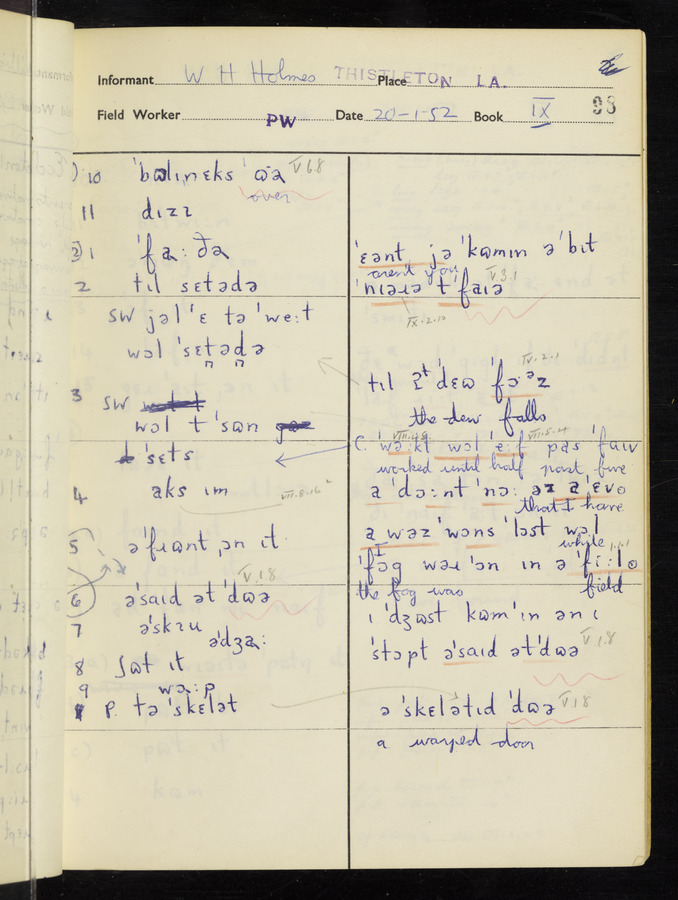 Informant W H Holmes THISTLETON Place LA.
Field Worker PW Date 20-1-52 Book IX 98
10 ˈbɷlɪnɛks ˈɷə V 6.8
over
11 dɪzɪ
2) 1 ˈfaː ðə
2 tɪl sɛtədə
SW jəlˈɛ tə ˈweːt
wəl ˈsɛtədə
3 SW
wəl t ˈsɷn
ˈsɛts
4 aks ɪm VII.8.16
5 əˈfɹɷnt ˌən ɪt
6 əˈsaɪd ət ˈdɷə V.1.8
7 əˈskɪu
ədʒəː
8 ʃɷt ɪt
9 wəːp
P. tə ˈskɛlət
ˈɛənt jə ˈkɷmɪn ə ˈbɪt
arent you
ˈnɪəɹə t ˈfaɪə V.3.1
IX.2.10
IV.2.1
tɪl ðᵗ dɛɷ ˈfɔˑᵊz
the dew falls
C. ˈwəːkt wəl ˈeːf pas ˈfaɪv
worked until half past five
a ˈdɔːnt ˈnɔː əz a ˈɛvə
that I have
a wəz ˈwɷns ˈlɔst wəl
while
ˈfɔg wəɹ ˈɔn ɪn ə ˈfiːlə
the fog was field
ɪ ˈdʒɷst kɷm ˈɪn ən ɪ
ˈstɔpt əˈsaɪd ət ˈdɷə V 1.8
ə ˈskɛlətɪd ˈdɷə V 1.8
a warped door